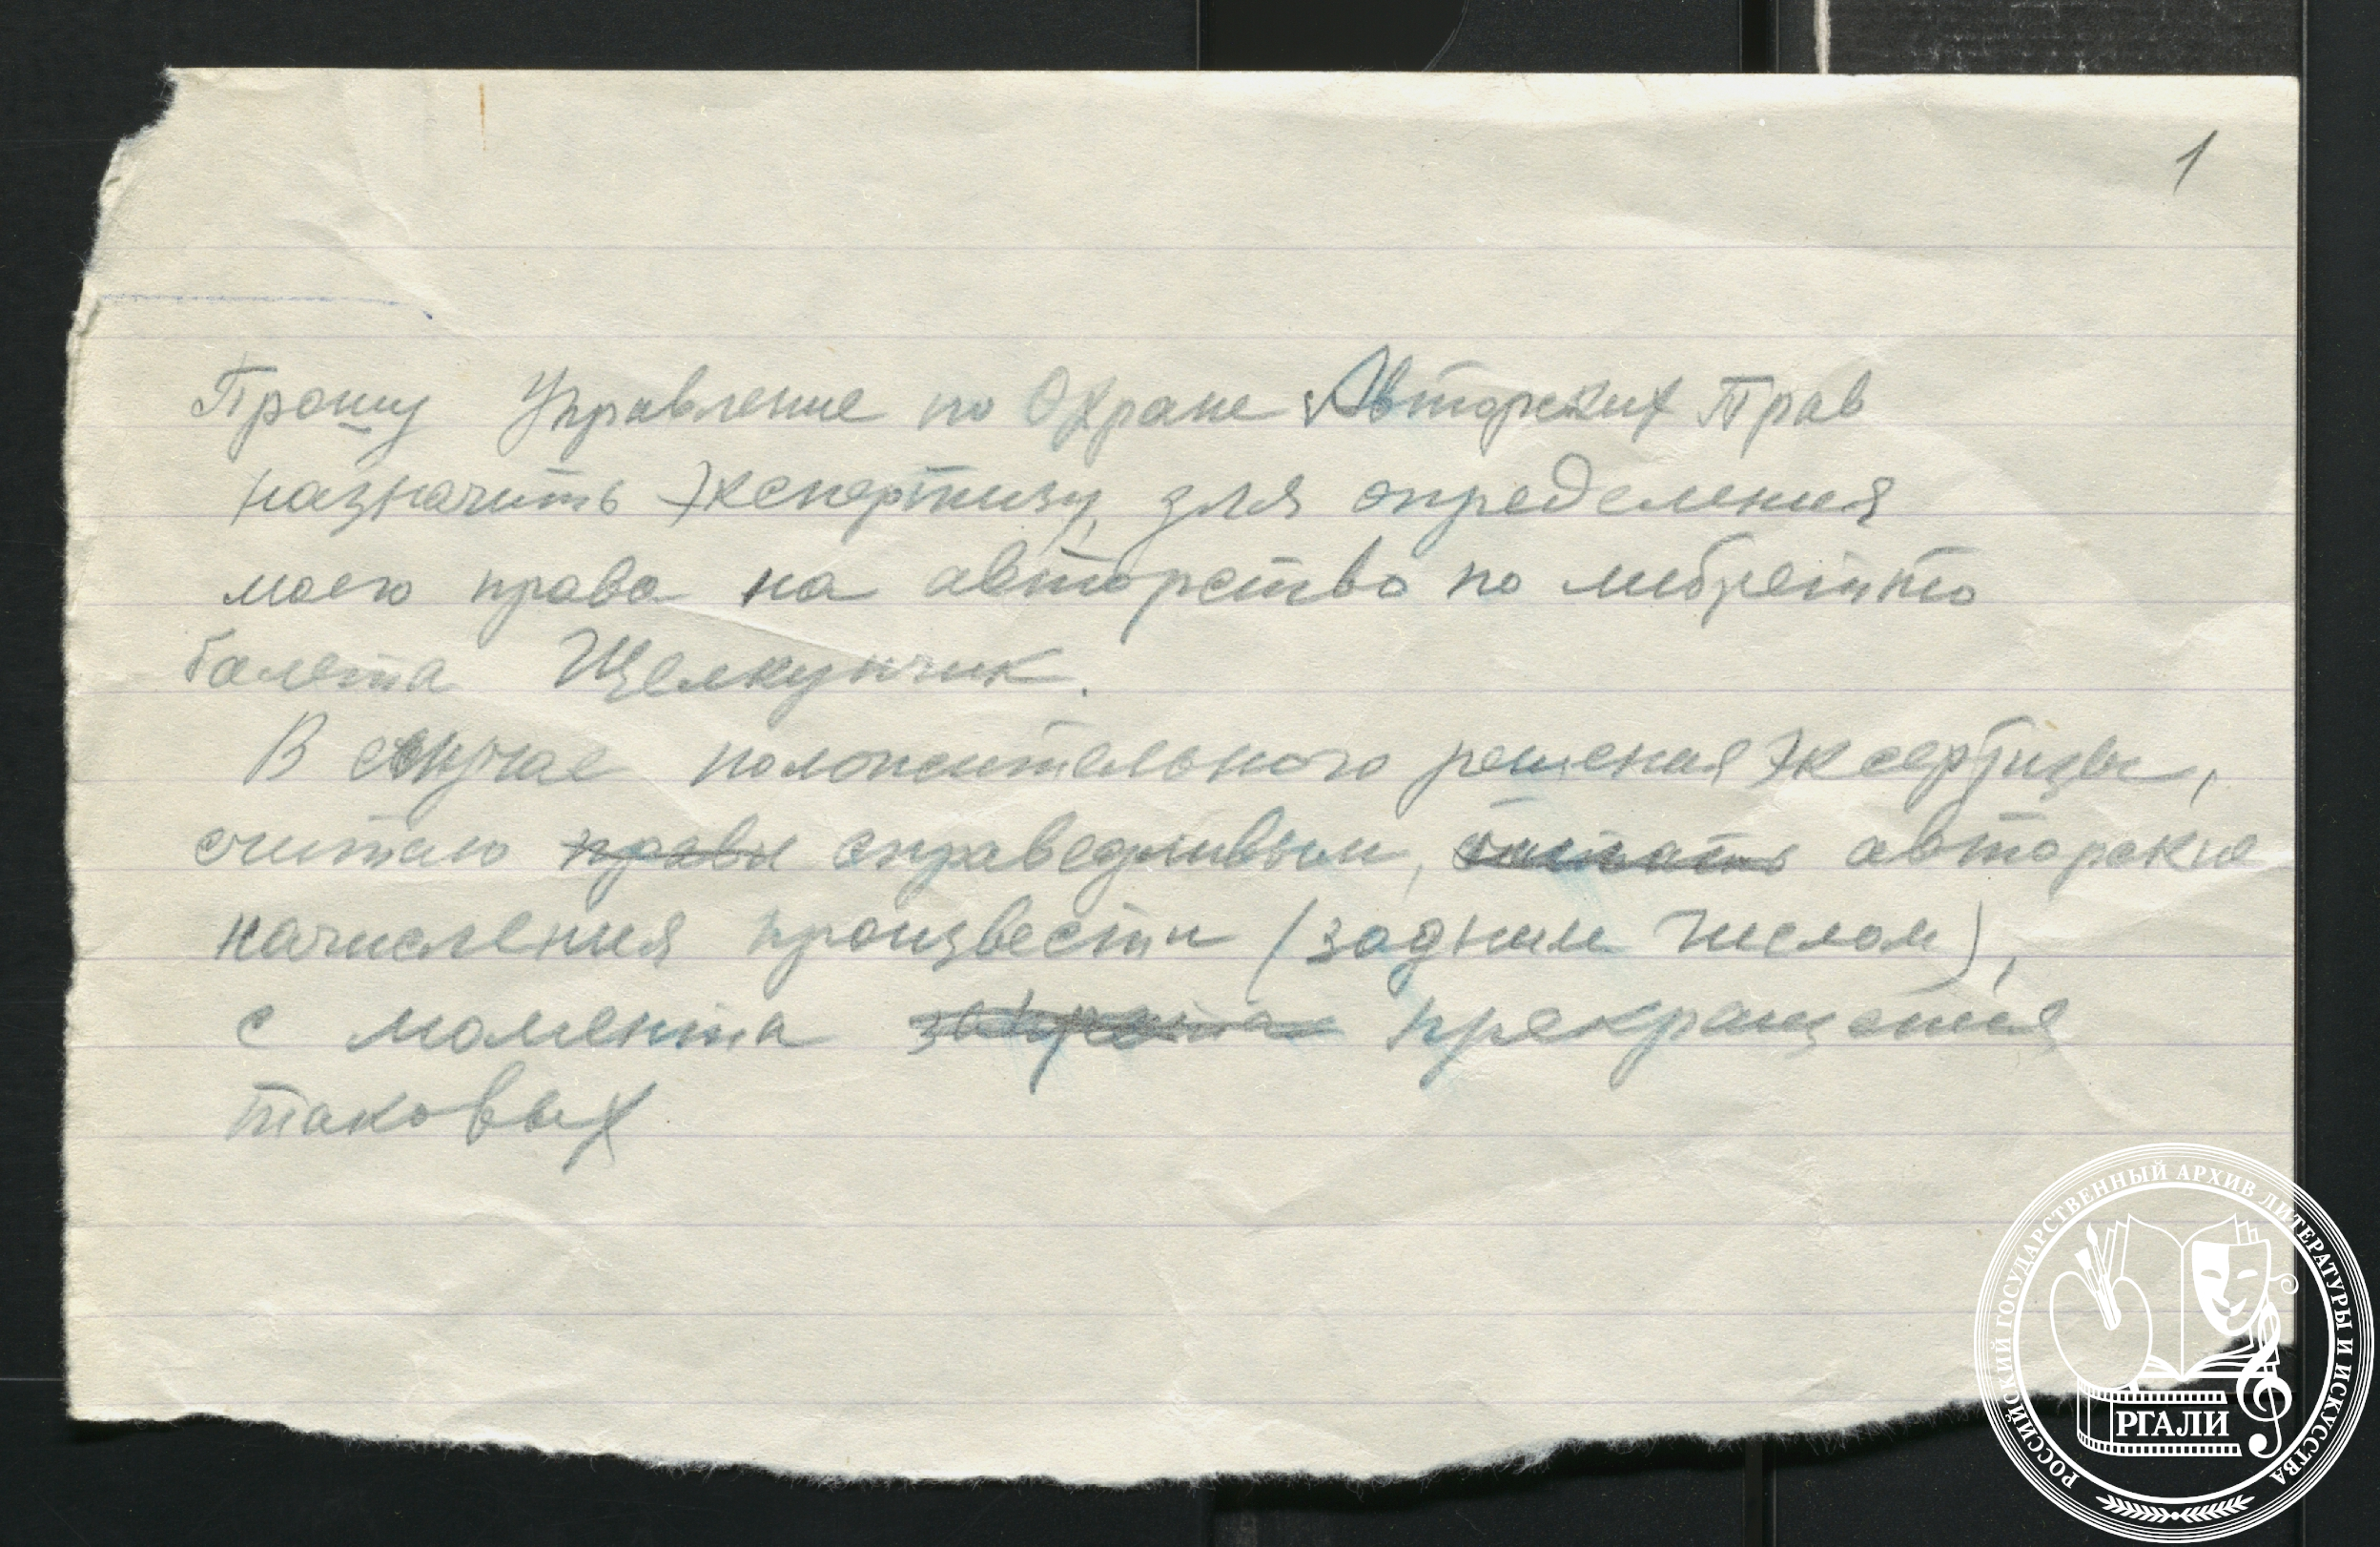 1
Прошу Управление по Охране Авторских Прав
назначить Экспертизу, для определения
моего права на авторство по либретто
балета Щелкунчик.
В случае положительного решения Эксертизы,
считаю правы справедливым, авторские
начисления произвести (задним числом),
с момента запрета прекращения
таковых
РОССИЙСКИЙ ГОСУДАРСТВЕННЫЙ АРХИВ ЛИТЕРАТУРЫ И ИСКУССТВА
РГАЛИ